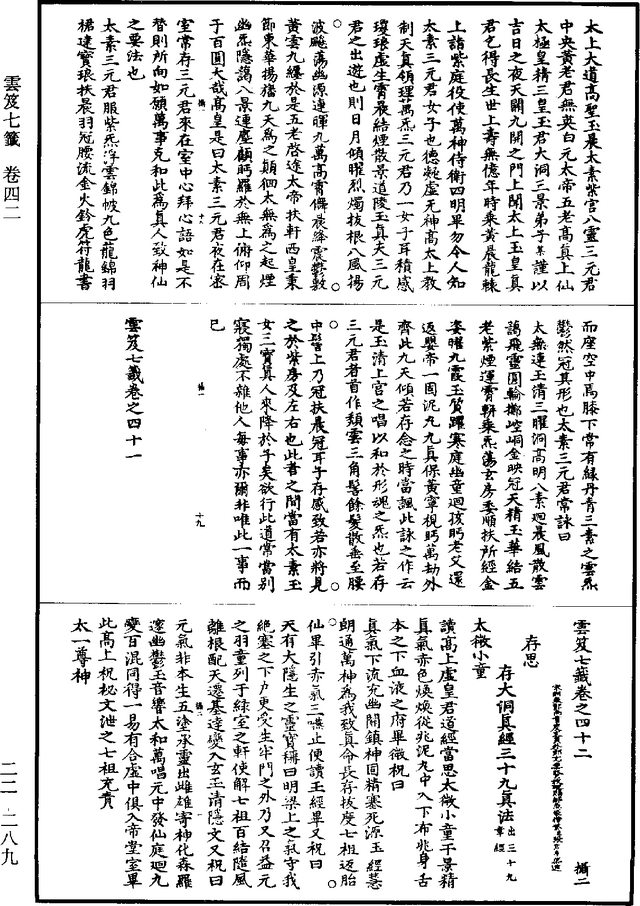 雲笈七籤　卷四二
二二　二八九
太上大道高聖玉晨太素紫宮八靈三元君
中央黃老君無英白元太帝五老高真上仙
太極皇精三皇玉君大洞三景弟子某謹以
吉日之夜天關九開之門上聞太上玉皇真
君乞得長生世上壽無億年時乘黃晨龍輧
上詣紫庭役使萬神侍衛四明畢勿令人知
太素三元君女子也德凝虛无神高太上教
制天真領理萬炁三元君乃一女子耳積感
瓊琅虛生霄晨結煙散景道陵玉真夫三元
君之出遊也則日月傾曜烈燭拔根八風揚
波飈蕩幽源連暉九萬高霄儛晨絳霞鬱敷
黃雲九纏於是五老啓途太帝扶軒西皇秉
節東華揚旛九天為之顛徊太無為之起煙
幽炁隱藹八景連塵顧眄羅於無上俯仰周
于百圓大哉高皇是曰太素三元君夜在密
室常存三元君來在室中心拜心語如是不
替則所向如願萬事克和此為真人致神仙
之要法也
太素三元君服紫炁浮雲錦帔九色龍錦羽
裙建寶琅扶晨羽冠腰流金火鈴虎符龍書
而座空中焉膝下常有綠丹青三素之雲炁
鬱然冠其形也太素三元君常詠曰
太無連玉清三曜洞高明八素迴晨風散雲
藹飛靈圓輪擲崆峒金映冠天精玉華結五
老紫煙運霄軿乘炁蕩玄房委順扶所經金
姿曜九霞玉質躍寒庭幽童迴孩眄老艾還
返嬰帝一固泥丸九真保黃寧視眄萬劫外
齊此九天傾若存念之時當諷此詠之作云
是玉清上宮之唱以和於形魂之炁也若存
三元君者首作頹雲三角髻餘髮散垂至腰
中髻上乃冠扶晨冠耳子存感致若亦將見
之於紫房及左右也此者之間當有太素玉
女三寶真人來降於子矣欲行此道常當別
寢獨處不雜他人每事亦爾非唯此一事而
已
雲笈七籤卷之四十一
十九
雲笈七籤卷之四十二
攝二
存思
存大洞真經三十九真法 出三十九章經
太微小童
讀高上虛皇君道經當思太微小童干景精
真氣赤色煥煥從兆泥丸中入下布兆身舌
本之下血液之府畢微祝曰
真氣下流充幽關鎮神固精塞死源玉經慧
朗通萬神為我致真命長存拔度七祖返胎
仙畢引赤氣三嚥止便讀玉經畢又祝曰
天有大隱生之靈寶稱曰明梁上之氣守我
絕塞之下戶更受生牢門之外乃又召益元
之羽童列于綠室之軒使解七祖百結隨風
離根配天遷基達變入玄玉清隱文又祝曰
元氣非本生五塗承靈出雌雄寄神化森羅
邃幽鬱玉音響太和萬唱元中發仙庭迴九
變百混同得一易有合虛中俱入帝堂室畢
此高上祝祕文泄之七祖充責
太一尊神